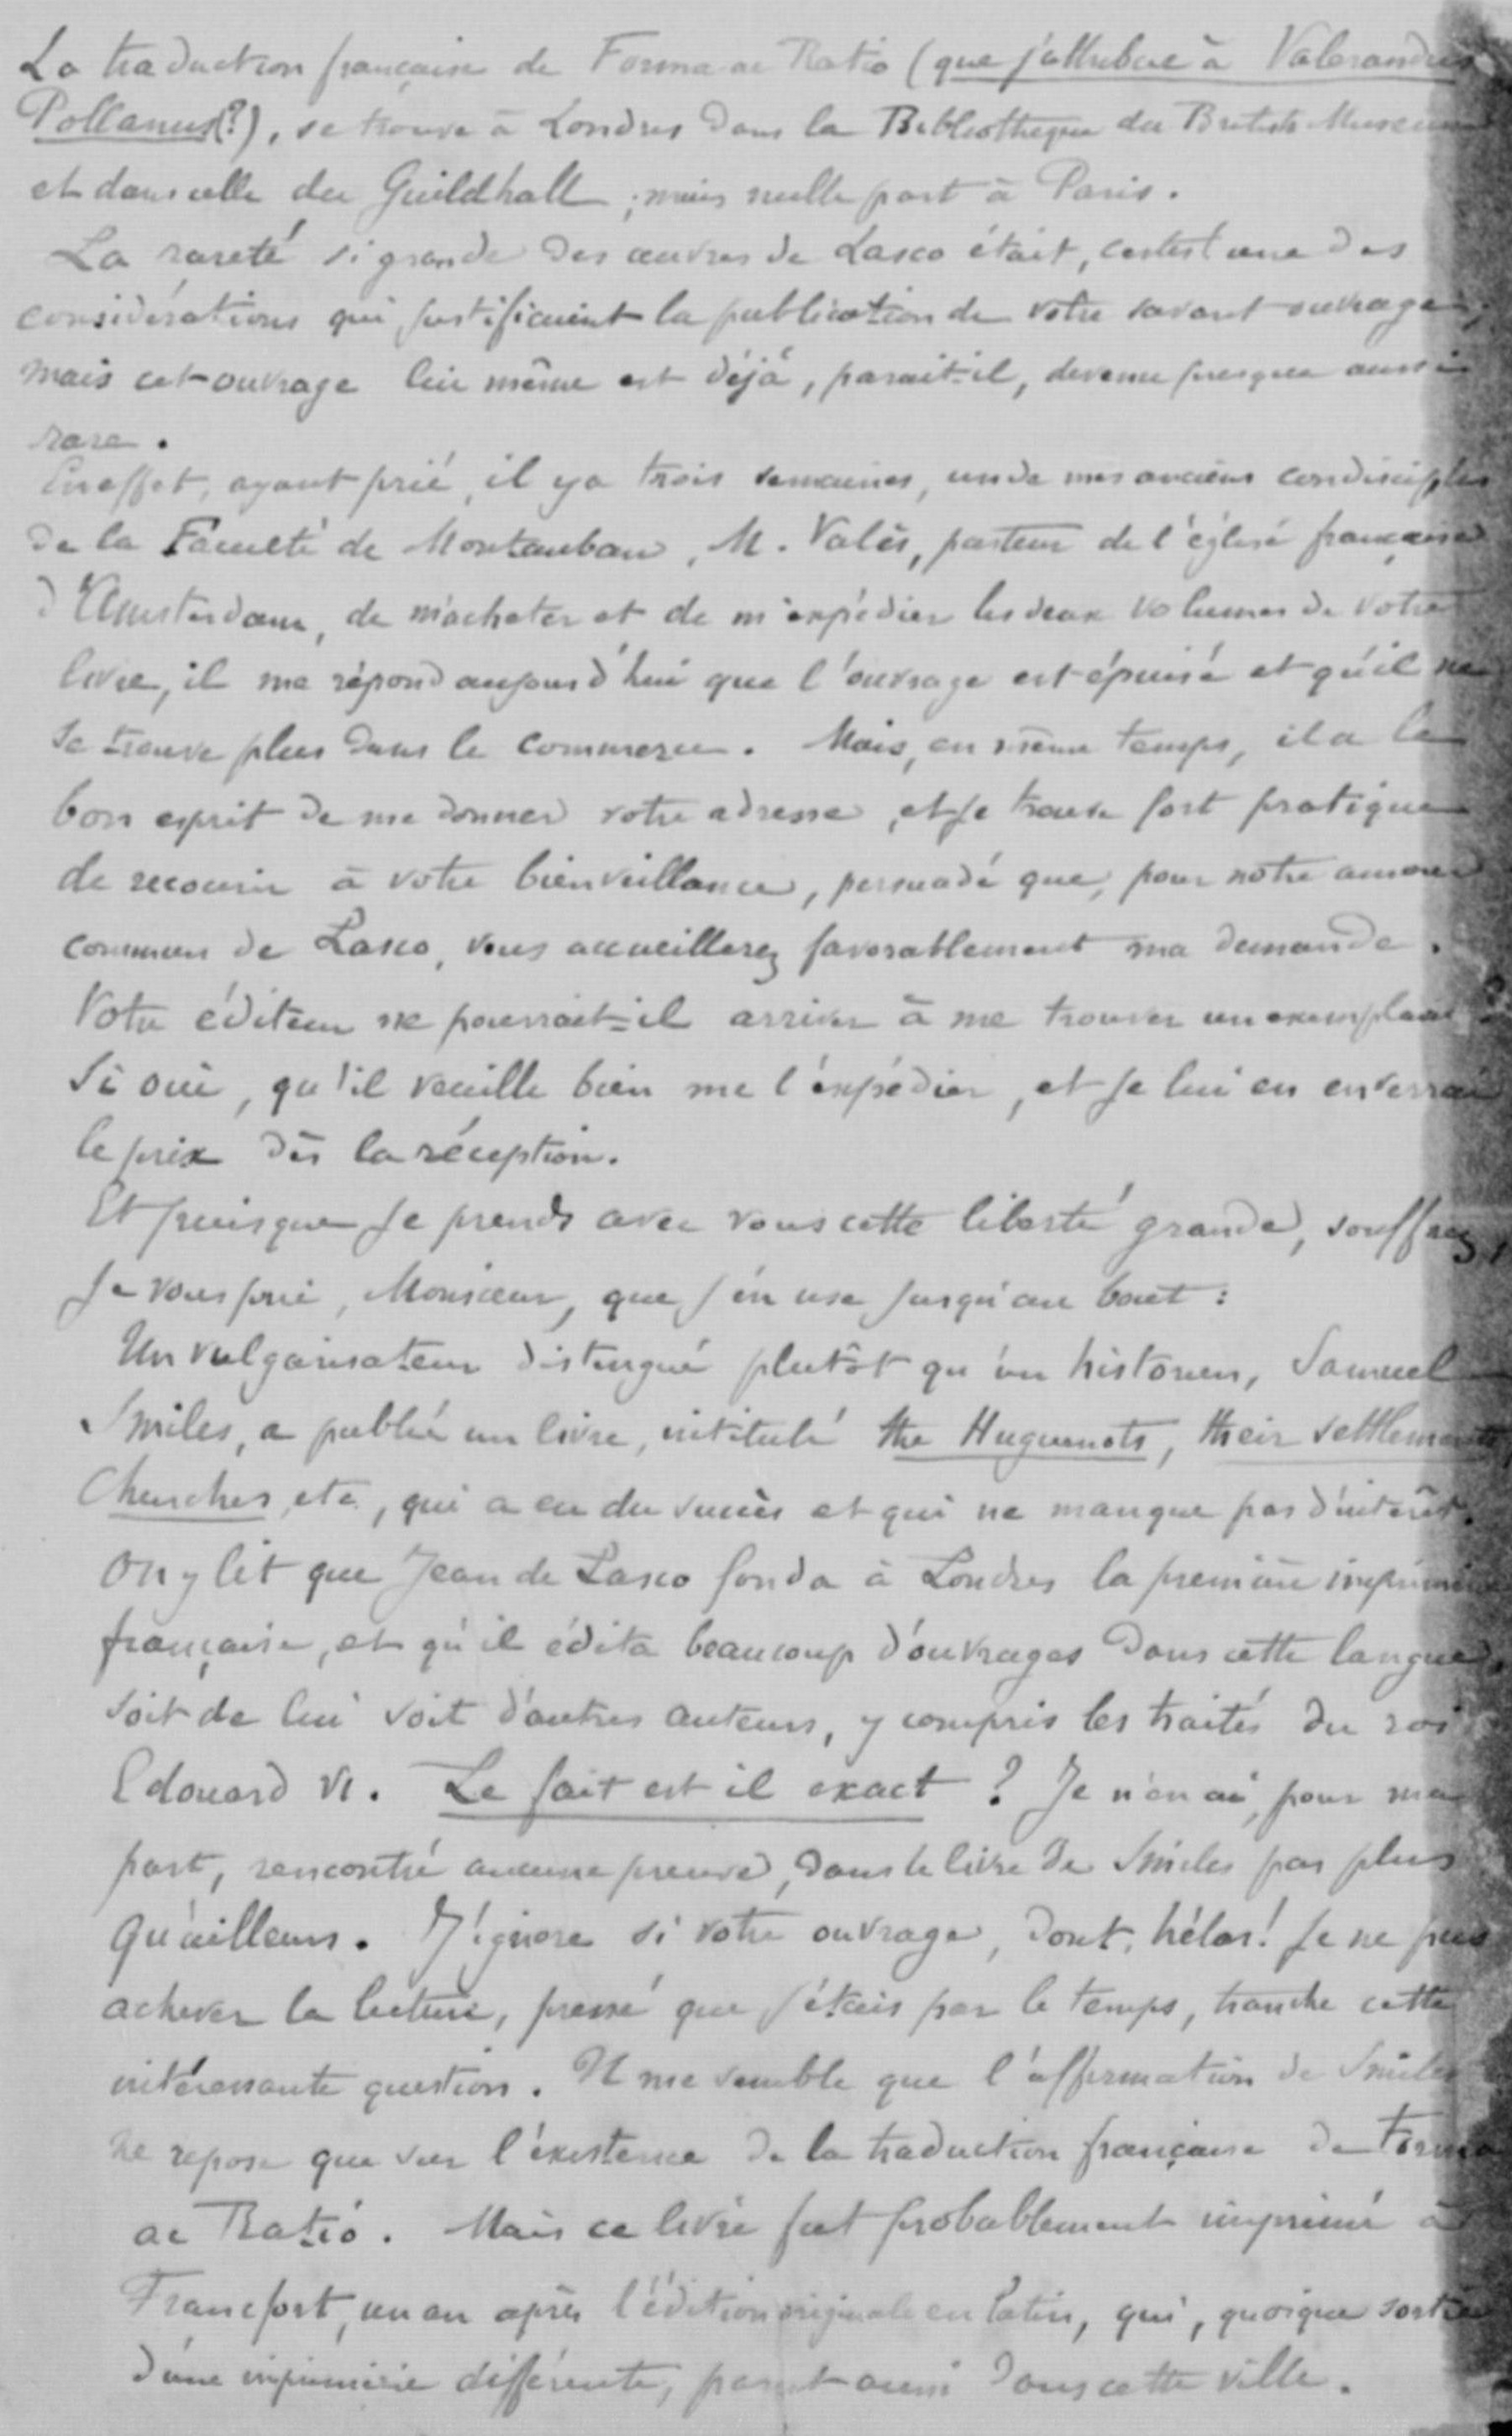 La traduction française de Forma ac Ratio (que j'attribue à Valerandus
Pollanus(?), se trouve à Londres dans la Bibliothèque du British Museum
et dans celle du Guildhall ; mais nulle part à Paris.
La rareté si grande des œuvres de Lasco était, certes l'une des
considérations qui justifiaient la publication de votre savant ouvrage ;
mais cet ouvrage lui même est déjà, parait-il, devenu presque aussi
rare.
En effet, ayant prié, il y a trois semaines, un de mes anciens condisciples
de la Faculté de Montauban, M. Valès, pasteur de l'église française
d'Amsterdam, de m'acheter et de m'expédier les deux volumes de votre
livre, il me répond aujourd'hui que l'ouvrage est épuisé et qu'il ne
se trouve plus dans le commerce. Mais, en même temps, il a le
bon esprit de me donner votre adresse, et je trouve fort pratique
de recourir à votre bienveillance, persuadé que, pour notre amour
commun de Lasco, vous accueillerez favorablement ma demande.
Votre éditeur ne pourrait-il arriver à me trouver un exemplaire ?
Si oui, qu'il veuille bien me l'expédier, et je lui en enverrai
le prix dès la réception.
Et puisque je prends avec vous cette liberté grande, souffrez,
je vous prie, Monsieur, que j'en use jusqu'au bout :
Un vulgarisateur distingué plutôt qu'un historien, Samuel
Smiles, a publié un livre, intitulé the Huguenots, their settlements,
Churches, etc, qui a eu du succès et qui ne manque pas d'intérêt.
On y lit que Jean de Lasco fonda à Londres la première imprimerie
française, et qu'il édita beaucoup d'ouvrages dans cette langue,
soit de lui soit d'autres auteurs, y compris les traités du roi
Edouard VI. Le fait est il exact ? Je n'en ai, pour ma
part, rencontré aucune preuve, dans le livre de Smiles pas plus
qu'ailleurs. J'ignore si votre ouvrage, dont, hélas! je ne pus
achever la lecture, pressé que j'étais par le temps, tranche cette
intéressante question. Il me semble que l'affirmation de Smiles
ne repose que sur l'existence de la traduction française de Forma
ac Ratio. Mais ce livre fut probablement imprimé à
Francfort, un an après l'édition originale en latin, qui, quoique sortie
d'une imprimerie différente, parut aussi dans cette ville.